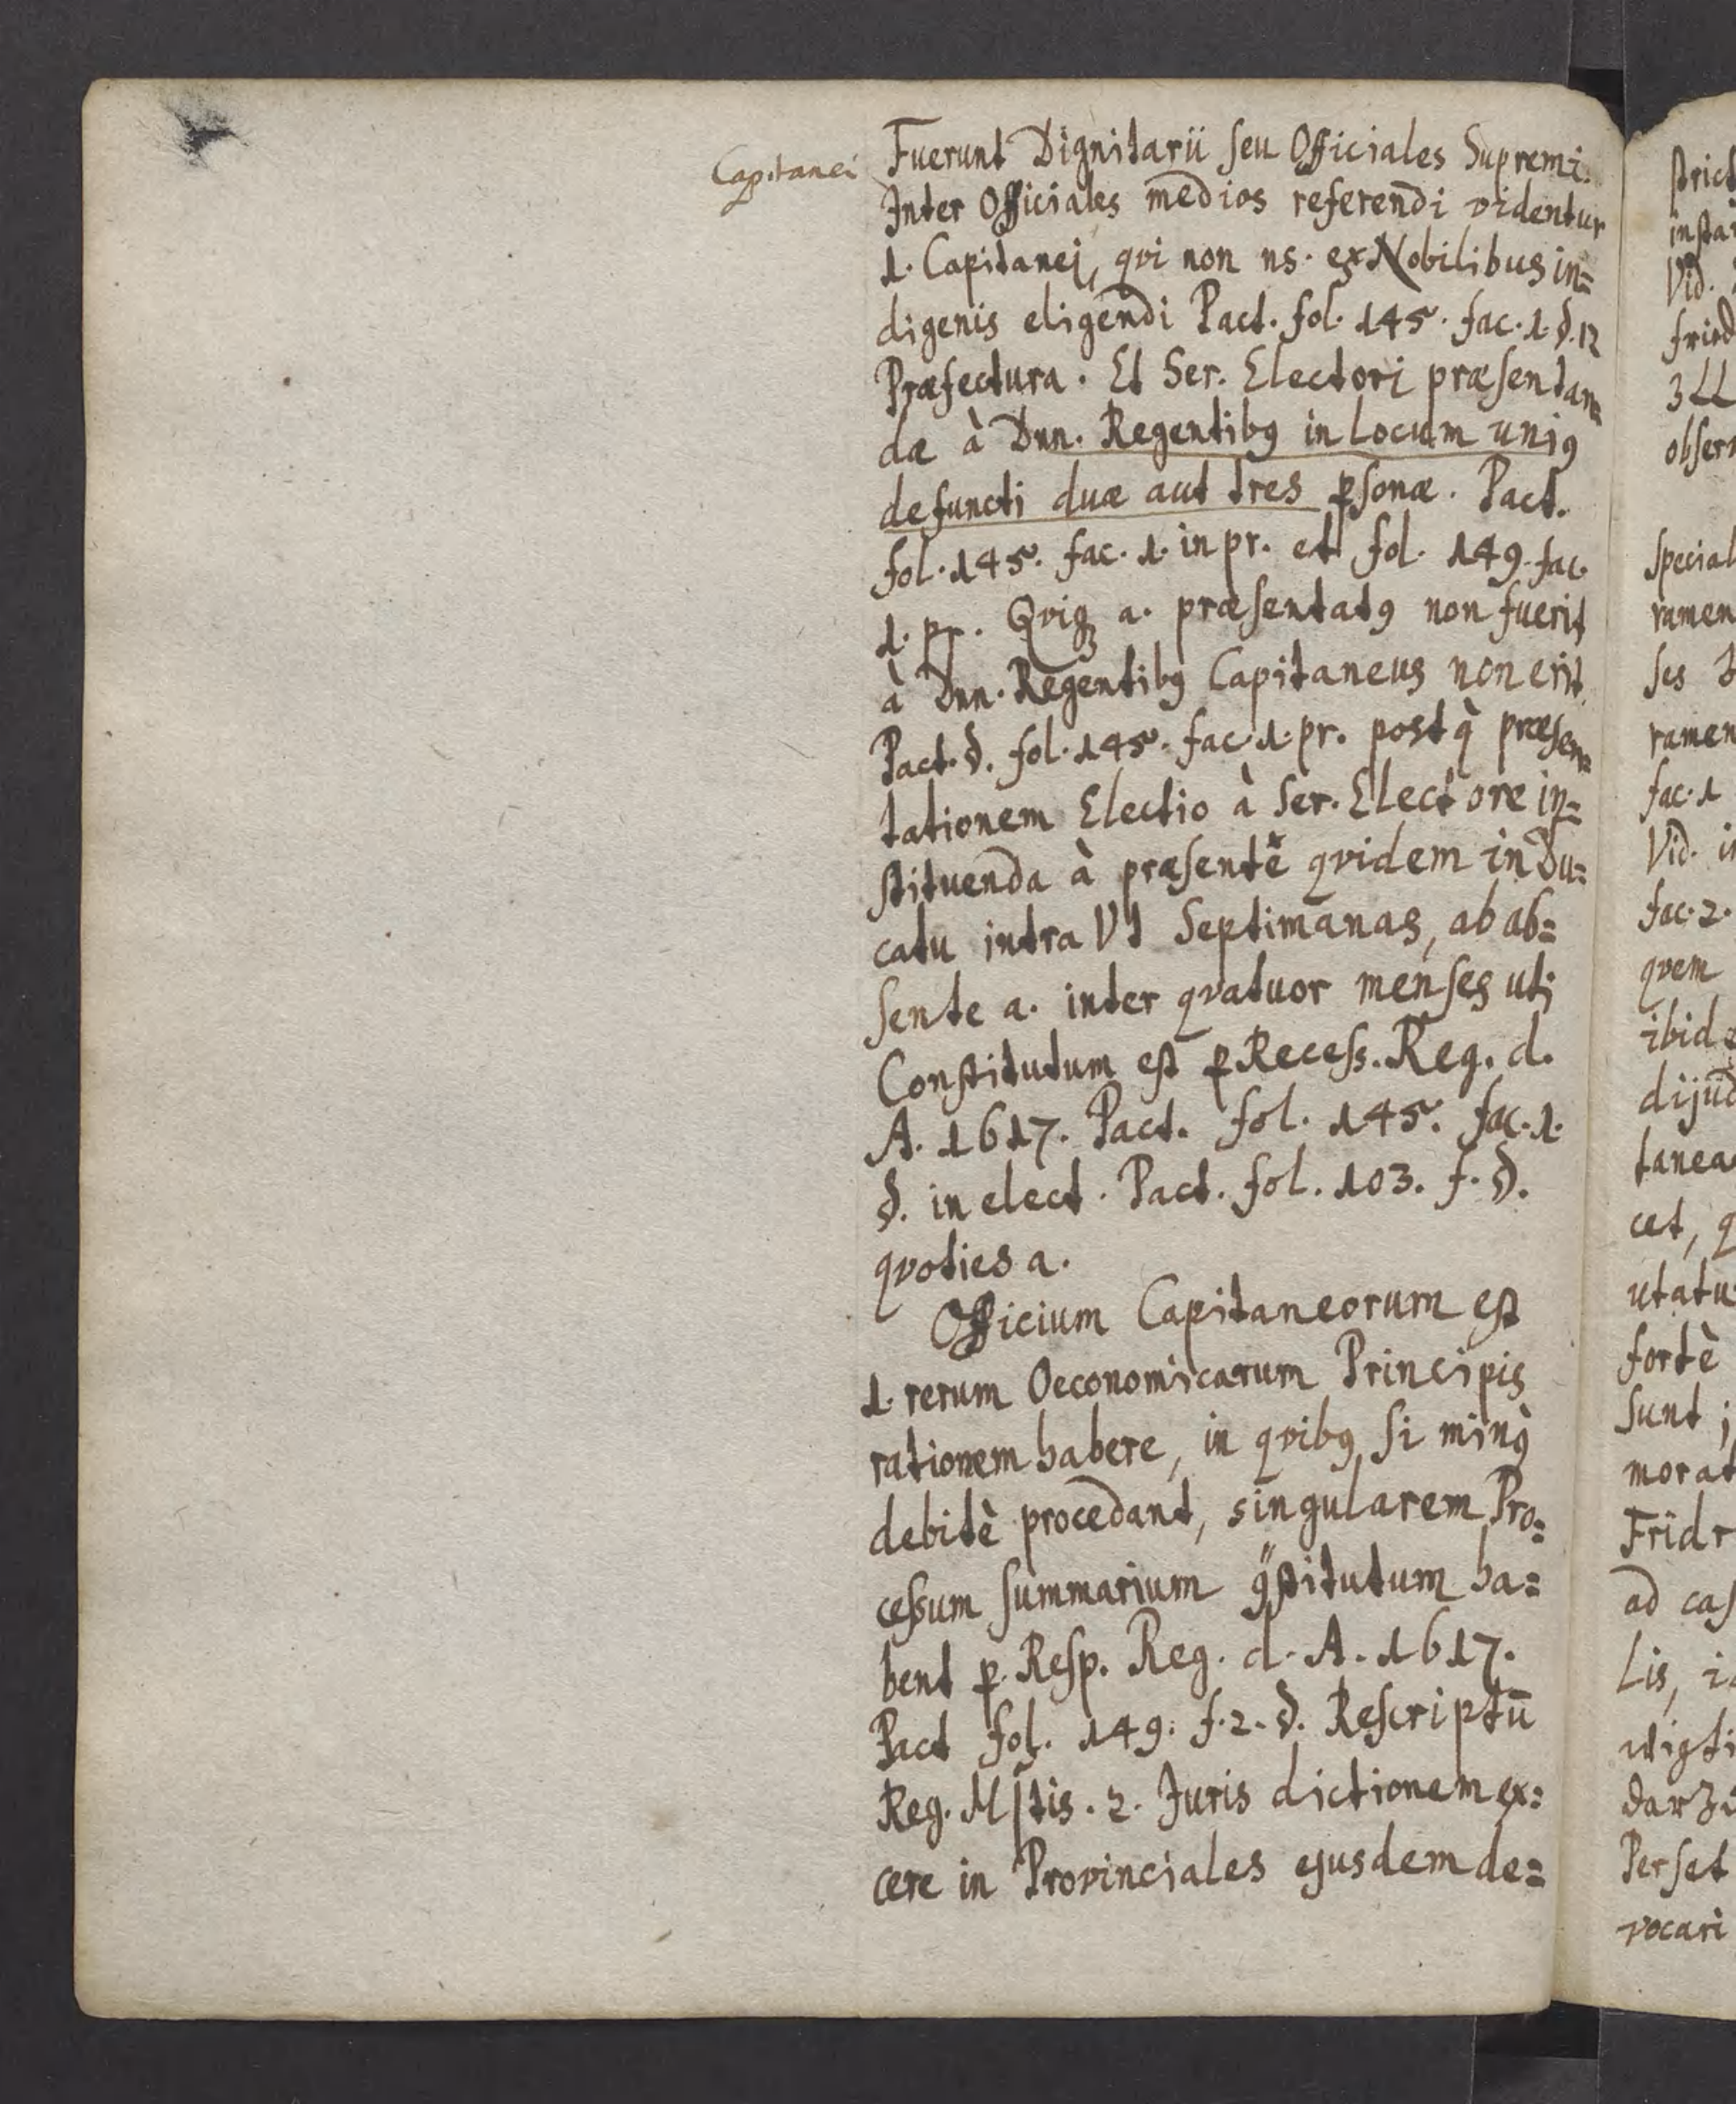 Capitanei
Fuerunt Dignitarii seu Officiales Supremi.
Inter Officiales medios referendi videntur
1. Capitanej, qvi non ns. ex Nobilibus in=
digenis eligendi Pact. fol. 145. fac. 1. §. 12
Præfectura. Et Ser. Electori præsentan=
dæ à Dnn. Regentibꝰ in Locum uniꝰ
defuncti duæ aut tres ꝑsonæ. Pact.
fol. 145. fac. 1. in pr. et fol. 149. fac.
1. pr. Qviqꝫ a. præsentatꝰ non fuerit
à Dnn. Regentibꝰ Capitaneus non erit
Pact. d. fol. 145. fac. 1. pr. post q̀ præsen=
tationem Electio à Ser. Electore in=
stituenda à præsente qvidem in Du=
catu intra VI Septimanas, ab ab=
sente a. inter qvatuor menses uti
Constitutum est ꝑ Recess. Reg. d.
A. 1617. Pact. fol. 145. fac. 1.
§. in elect. Pact. fol. 103. f. §.
qvoties a.
Officium Capitaneorum est
1. rerum Oeconomicarum Principis
rationem habere, in qvibꝰ si minꝰ
debitè procedant, singularem Pro=
cessum summarium ꝯstitutum ha=
bent ꝑ Resp. Reg. d. A. 1617.
Pact fol. 149. f. 2. §. Rescriptū
Reg. Mstis. 2. Juris dictionem ex=
cere in Provinciales ejusdem de=
strict
Vid.
3 LL
ramen
ramen
fac. 1
fac. 2.
qvem
cet, q
fortè
sunt
morat
Fridr
ad cas
Lis, i
vocari